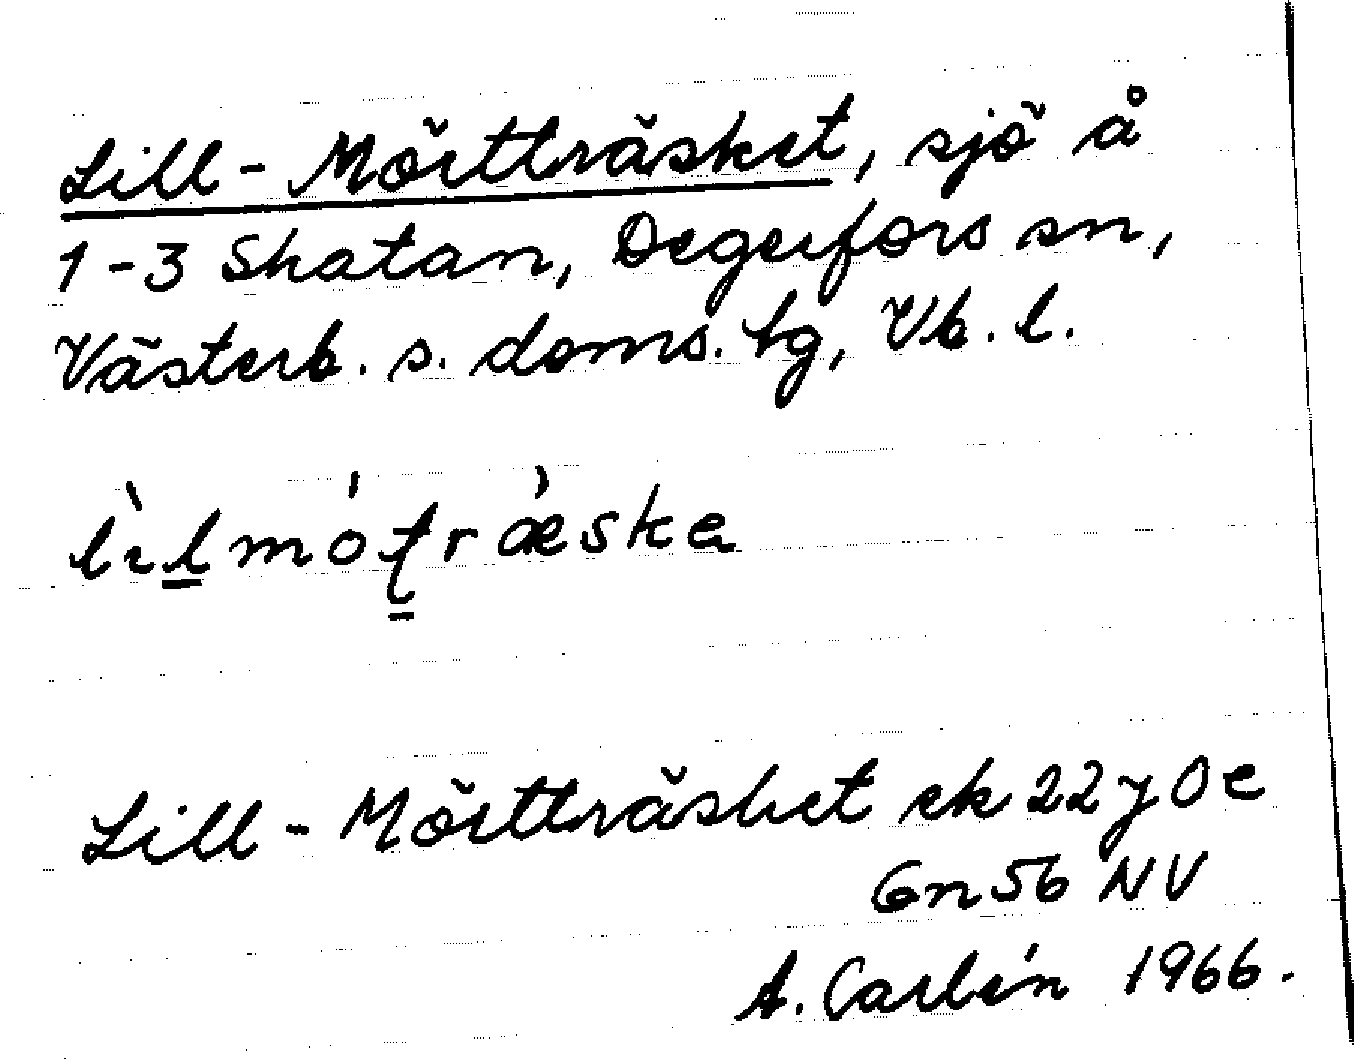 Lill-Mörtträsket, sjö å
1-3 Skatan, Degerfors sn,
Västerb. s. doms. tg, Vb. l.
Lill-Mörtträsket ek 22 J 0 e
Gn 56 NV
A. Carlén 1966.